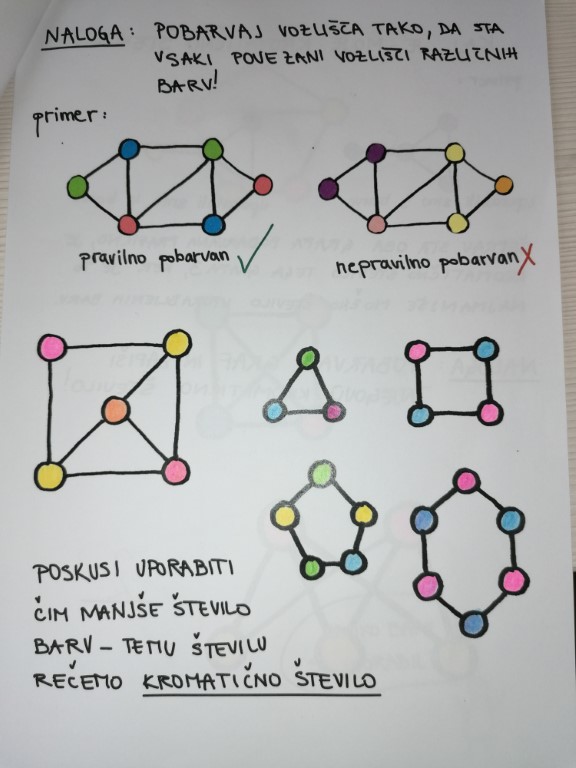 NALOGA: POBARVAJ VOZLIŠČA TAKO, DA STA
VSAKI POVEZANI VOZLIŠČI RAZLIČNIH
BARV!
primer:
pravilno pobarvan
nepravilno pobarvan
POSKUSI UPORABITI
ČIM MANJŠE ŠTEVILO
BARV - TEMU ŠTEVILU
REČEMO KROMATIČNO ŠTEVILO